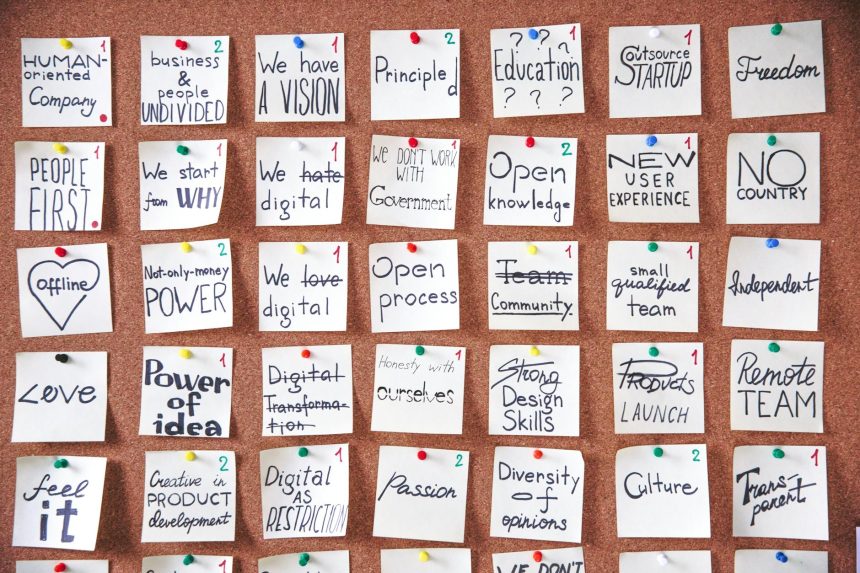 1
HUMAN-
oriented
Company
2
business
&
people
UNDIVIDED
1
We have
A VISION
2
Principled
1
? ? ?
Education
? ? ?
1
Outsource
STARTUP
Freedom
1
PEOPLE
FIRST
2
We start
from WHY
1
We hate
digital
1
WE DON'T WORK
WITH
Government
2
Open
knowledge
1
NEW
USER
EXPERIENCE
NO
COUNTRY
offline
2
Not-only-money
POWER
1
We love
digital
Open
process
1
Team
Community
1
small
qualified
team
Independent
LOVE
1
Power
of
idea
Digital
Transforma-
tion
1
Honesty with
ourselves
Strong
Design
Skills
1
Products
LAUNCH
Remote
TEAM
feel
it
2
Creative in
PRODUCT
development
1
Digital
AS
RESTRICTION
2
Passion
Diversity
of
opinions
2
Culture
1
Trans-
parent
2
1
WE DON'T